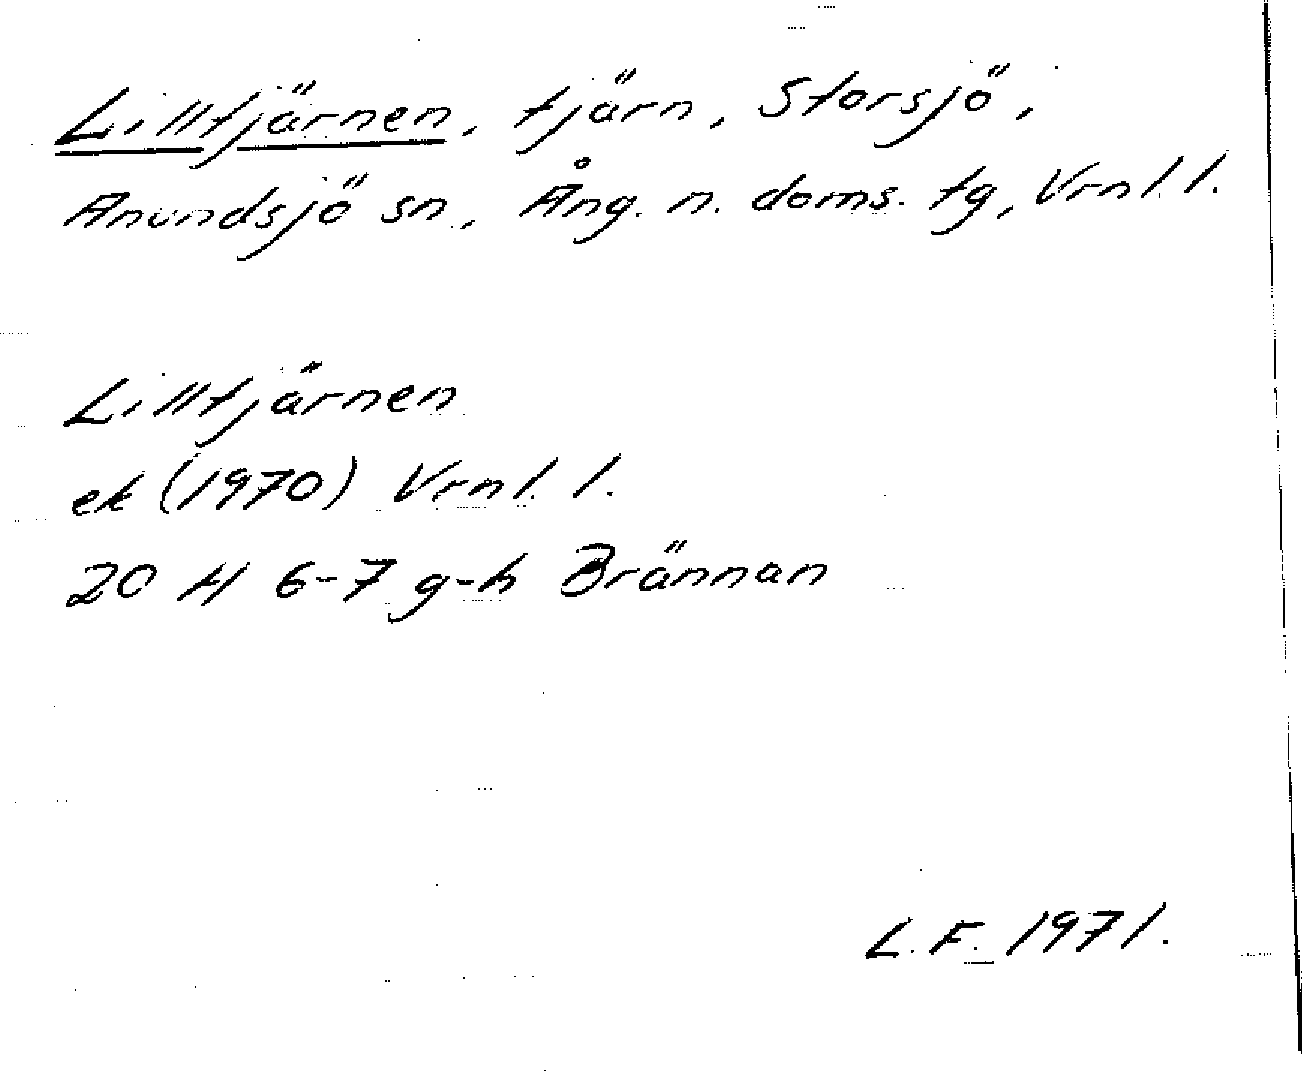 Lilltjärnen, tjärn, Storsjö,
Anundsjö sn., Ång. n. doms. tg, Vrnl. l.
Lilltjärnen
ek (1970) Vrnl. l.
20 H 6-7 g-h Brännan
L. F. 1971.